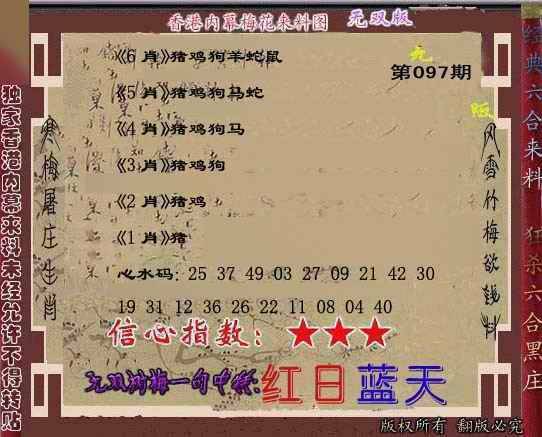 香港内幕梅花来料图 无双版
无
版
第097期
《6 肖》猪鸡狗羊蛇鼠
《5 肖》猪鸡狗马蛇
《4 肖》猪鸡狗马
《3 肖》猪鸡狗
《2 肖》猪鸡
《1 肖》猪
心水码: 25 37 49 03 27 09 21 42 30
19 31 12 36 26 22 11 08 04 40
信心指数: ★★★
一句中特:红日蓝天
寒梅屠庄生肖
风雪竹梅欲钱料
独家香港内幕来料未经允许不得转贴
经典六合来料
狂杀六合黑庄
版权所有 翻版必究